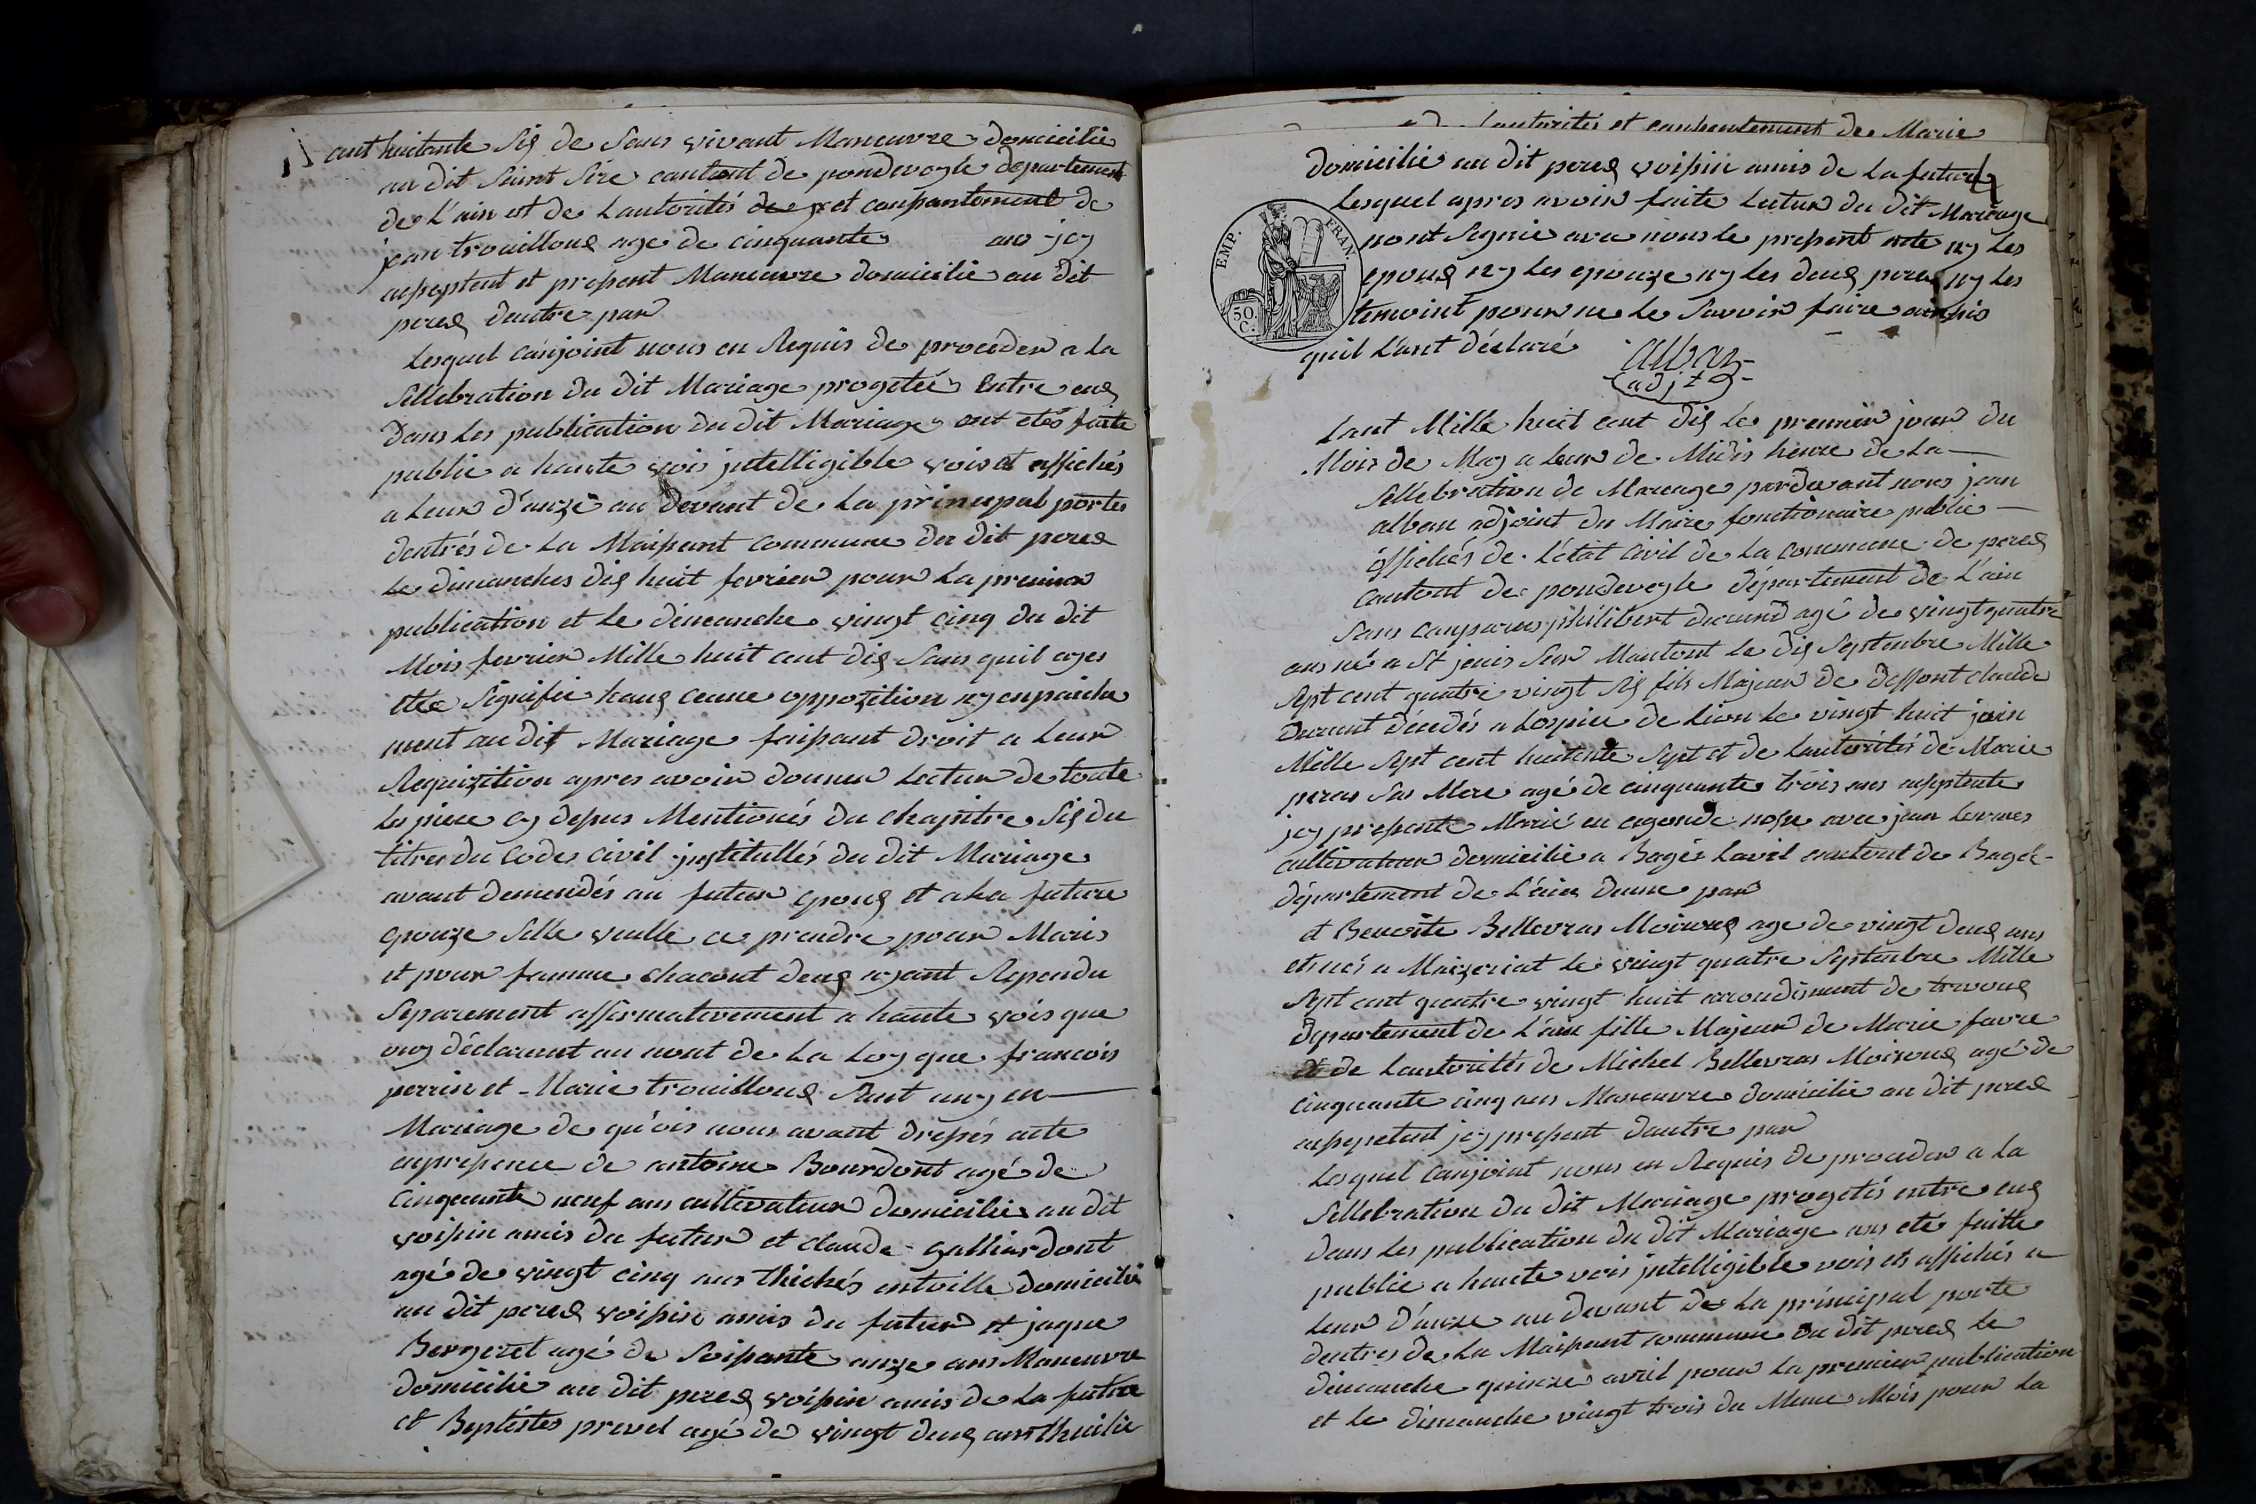 cent huitente Sis de Sans vivant Maneuvre domicilie
au dit Saint Sire cantont de pondevegle departement
de L'ain et de Lautorités de p et conpantement de
jean trouillous age de cinquante ans jcy
acseptent et present Maneuvre domicilie au dit
peres dautre par
Lesquel canjoint nous en Requis de proceder a La
Sellebration du dit Mariage progetée Entre eus
dans Les publication du dit Mariage ont etes faite
publie a haute vois jntelligible vois et affichés
a Leur d'onze au devant de La principal porte
dentrés de La Maisant commune du dit peres
Le dimanches dis huit fevrier pour La premier
publication et Le dimanche vingt cinq du dit
Mois fevrier Mille huit cent dis Sans quil ayes
etée Signifie haus cune oppozition ny enpaiche
ment au dit Mariage faisant droit a Leur
Requizition apres avoir donner Lectur de toute
Les piece cy depus Mentionés du chapitre Sis du
titres du Codes civil jnstitullés du dit Mariage
avont demendés au futur epous et a La future
epouze Selle veulle ce prendre pour Maris
et pour famme chacont deus ayant Repondu
Separement affirmativement a haute vois que
ouy déclarent au nont de La Loy que francois
perrin et Marie trouillous Sont uny en
Mariage de qu'ois nous avont dresés acte
enpresence de antoine Bourdont agé de
Cinquante neuf ans cultivateur domicilie au dit
voisin amis du futur et claude galliardont
agé de vingt cinq ans thichés entoille domicilié
au dit peres voisin amis du futur et jaque
Bergeret agé de Soisante onze ans Maneuvre
domicilie au dit peres voisin amis de La futre
et Beptistes prevel agé de vingt deus ans thicilie
Lautorités et conhentement de Marie
domicilie au dit peres voisin amis de La future
Lesquel apres avoir faite Lectur du dit Mariage
nont Signie avec nous le present acte ny Les
EMP. FRAN.
epous ny Les epouze ny Les deus peres ny Les
temoint pour ne Le Savoir faire ainsis
50. C.
quil L'ont déclaré
alban
adjt
Lant Mille huit cent dis Le premier jour du
Mois de May a Leur de Midis heure de La
Sellebration de Mareage pardevant nous jean
alban adjoint du Maire fonctionaire publie
officiés de L'état Civil de La commune de peres
cantont de pondevegle département de L'ain
Sans conparus philibert durand agé de vingt quatre
ans né a St jenis Sur Mantont Le dis Septenbre Mille
Sept cent quatre vingt Sis fils Majeur de deffont claude
Durent décedés a Lospice de Lion Le vingt huit juin
Mille Sept cent huitente Sept et de Lautorités de Marie
peras Sas Mere agé de cinquante trois ans acseptente
jcy presente Marié en cegonde nose avec jean
cultivateur domicilie a Bagés Lavil cantont de Bagé
département de L'ain dune par
et Benoite Bellevras Moiroux age de vingt deus ans
et née a Maizeriat Le vingt quatre Septenbre Mille
Sept cent quatre vingt huit arrondisment de trevous
departement de L'ain fille Majeur de Marie favre
et de Lautorités de Michel Bellevras Moirous agé de
cinquante cinq ans Maneuvre domicilie au dit peres
acseptent jcy present dautre par
Lesquel canjoint nous en Requis de proceder a La
Sellebration du dit Mariage progetés entre eus
dans Les publication du dit Mariage ans eté faitte
publie a haute vois jntelligible vois et affichés a
Leur d'onze au devant de La principal porte
dentres de La Maisant commune du dit peres Le
dimanche quinze avril pour La premier publication
et Le dimanche vingt trois du Meme Mois pour La